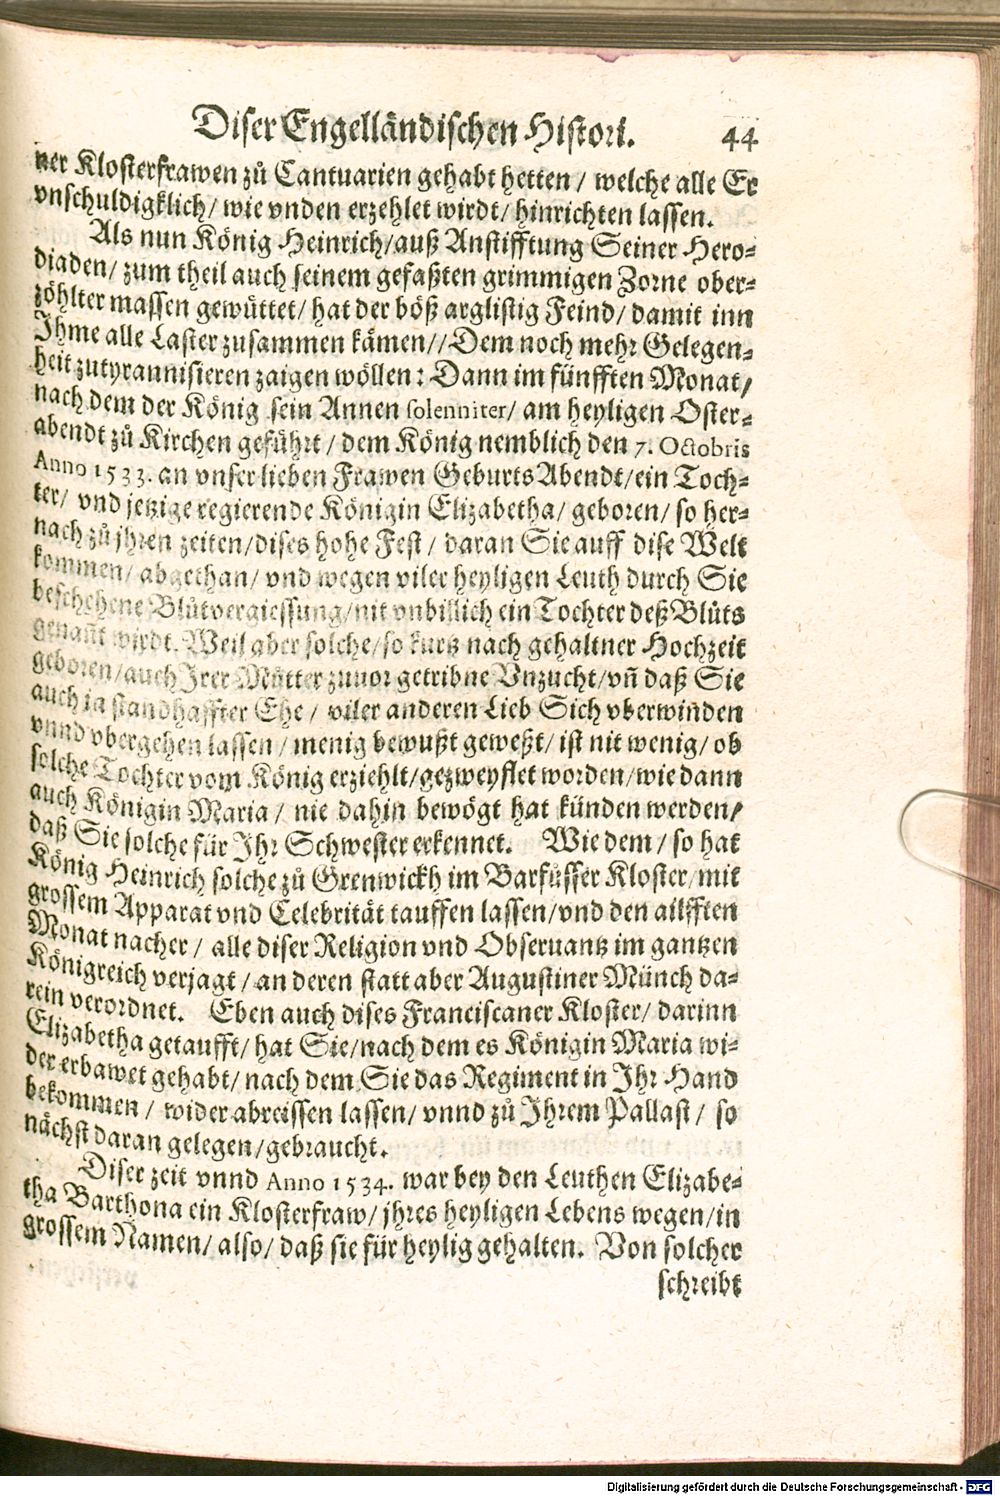 Diser Engelländischen Histori. 44
ner Klosterfrawen zů Cantuarien gehabt hetten / welche alle Er
vnschuldigklich / wie vnden erzehlet wirdt / hinrichten lassen.
Als nun König Heinrich / auß Anstifftung Seiner Hero-
diaden / zum theil auch seinem gefaßten grimmigen Zorne ober-
zöhlter massen gewüttet / hat der böß arglistig Feind / damit inn
Ihme alle Laster zusammen kämen // Dem noch mehr Gelegen-
heit zutyrannisieren zaigen wöllen: Dann im fünfften Monat /
nach dem der König sein Annen solenniter / am heyligen Oster-
abendt zů Kirchen geführt / dem König nemblich den 7. Octobris
Anno 1533. an vnser lieben Frawen Geburts Abendt / ein Toch-
ter / vnd jetzige regierende Königin Elizabetha / geboren / so her-
nach zů jhren zeiten / dises hohe Fest / daran Sie auff dise Welt
kommen / abgethan / vnd wegen viler heyligen Leuth durch Sie
beschehene Blůtvergiessung / nit vnbillich ein Tochter deß Blůts
genañt wirdt. Weil aber solche / so kurtz nach gehaltner Hochzeit
geboren / auch Irer Můtter zuuor getribne Vnzucht / vñ daß Sie
auch in standhaffter Ehe / viler anderen Lieb Sich vberwinden
vnnd vbergehen lassen / menig bewußt geweßt / ist nit wenig / ob
solche Tochter vom König erziehlt / gezweyflet worden / wie dann
auch Königin Maria / nie dahin bewögt hat künden werden /
daß Sie solche für Ihr Schwester erkennet. Wie dem / so hat
König Heinrich solche zů Grenwickh im Barfůsser Kloster / mit
grossem Apparat vnd Celebrität tauffen lassen / vnd den ailfften
Monat nacher / alle diser Religion vnd Obseruantz im gantzen
Königreich verjagt / an deren statt aber Augustiner Münch da-
rein verordnet. Eben auch dises Franciscaner Kloster / darinn
Elizabetha getaufft / hat Sie / nach dem es Königin Maria wi-
der erbawet gehabt / nach dem Sie das Regiment in Ihr Hand
bekommen / wider abreissen lassen / vnnd zů Ihrem Pallast / so
nächst daran gelegen / gebraucht.
Diser zeit vnnd Anno 1534. war bey den Leuthen Elizabe-
tha Barthona ein Klosterfraw / jhres heyligen Lebens wegen / in
grossem Namen / also / daß sie für heylig gehalten. Von solcher
schreibt
Digitalisierung gefördert durch die Deutsche Forschungsgemeinschaft - DFG